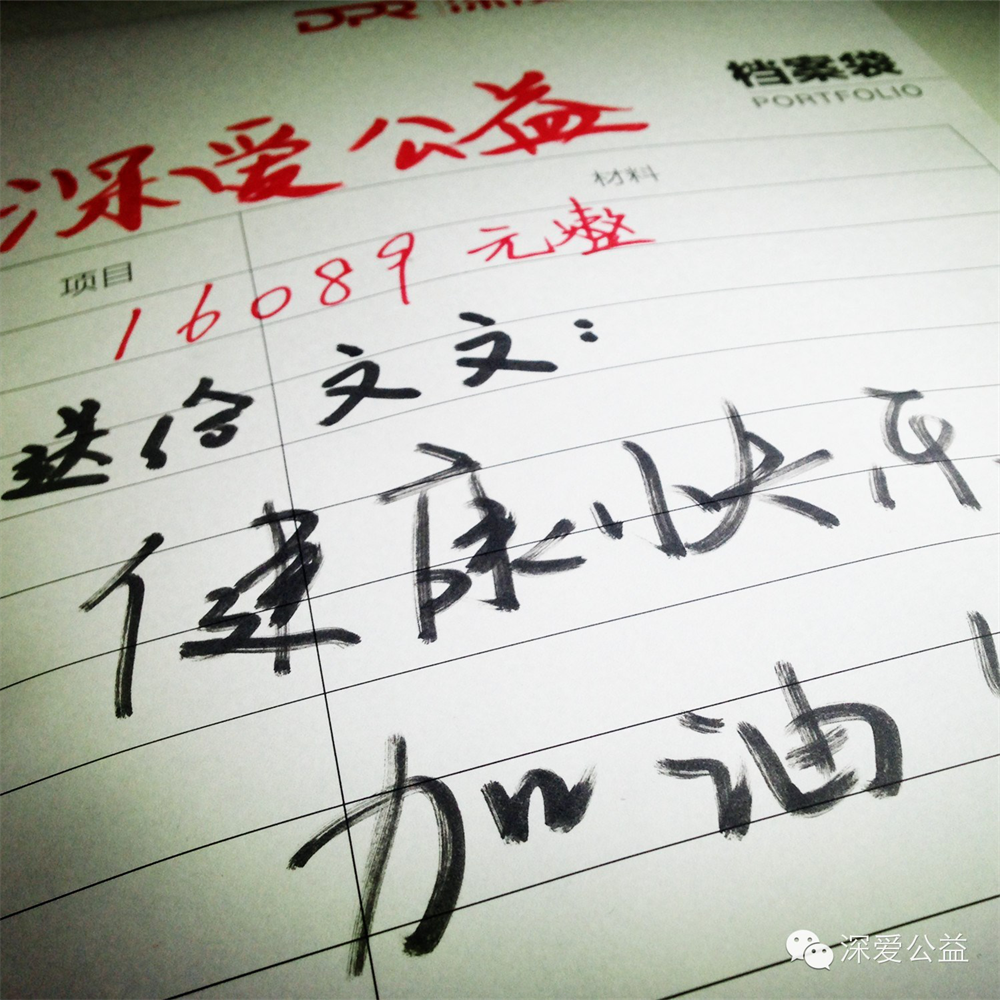 DPR
档案袋
PORTFOLIO
深爱公益
项目
材料
16089 元整
送给文文：
健康快乐
加油！
深爱公益